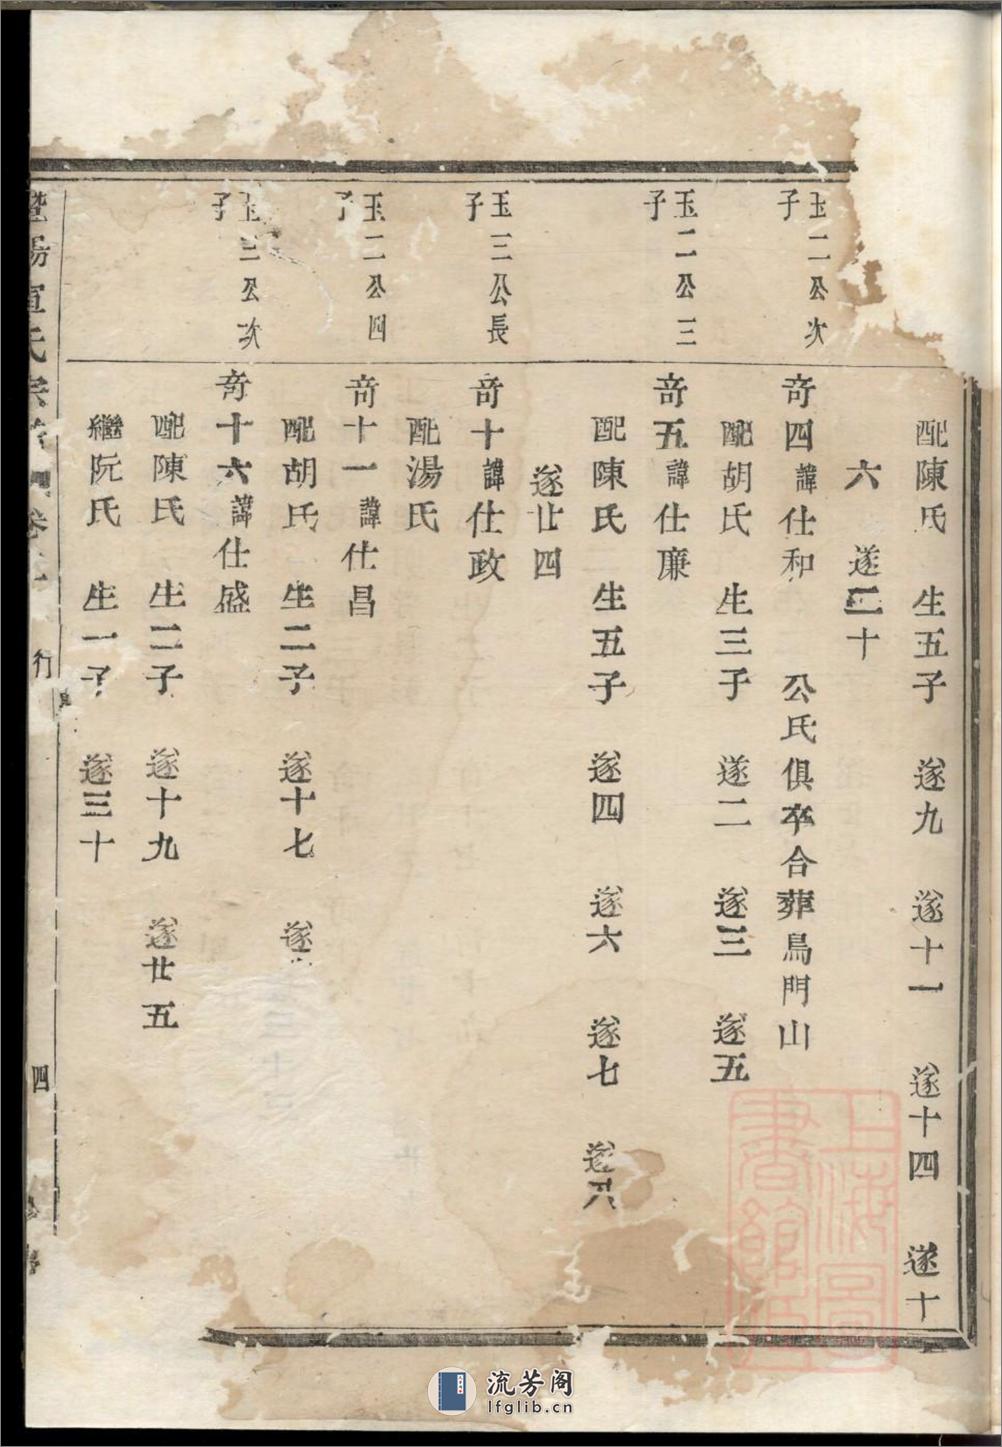 配陳氏 生五子 遂九 遂十一 遂十四 遂十
六 遂二十
玉二公次
子
奇四諱仕和 公氏俱卒合葬鳥門山
配胡氏 生三子 遂二 遂三 遂五
玉二公三
子
奇五諱仕廉
配陳氏 生五子 遂四 遂六 遂七 遂八
遂廿四
玉三公長
子
奇十諱仕政
配湯氏
玉二公四
子
奇十一諱仕昌
配胡氏 生二子 遂十七 遂
玉三公次
子
奇十六諱仕盛
配陳氏 生二子 遂十九 遂廿五
繼阮氏 生一子 遂三十
暨陽宣氏宗譜 卷 行 四
上海圖書館藏
流芳阁
lfglib.cn